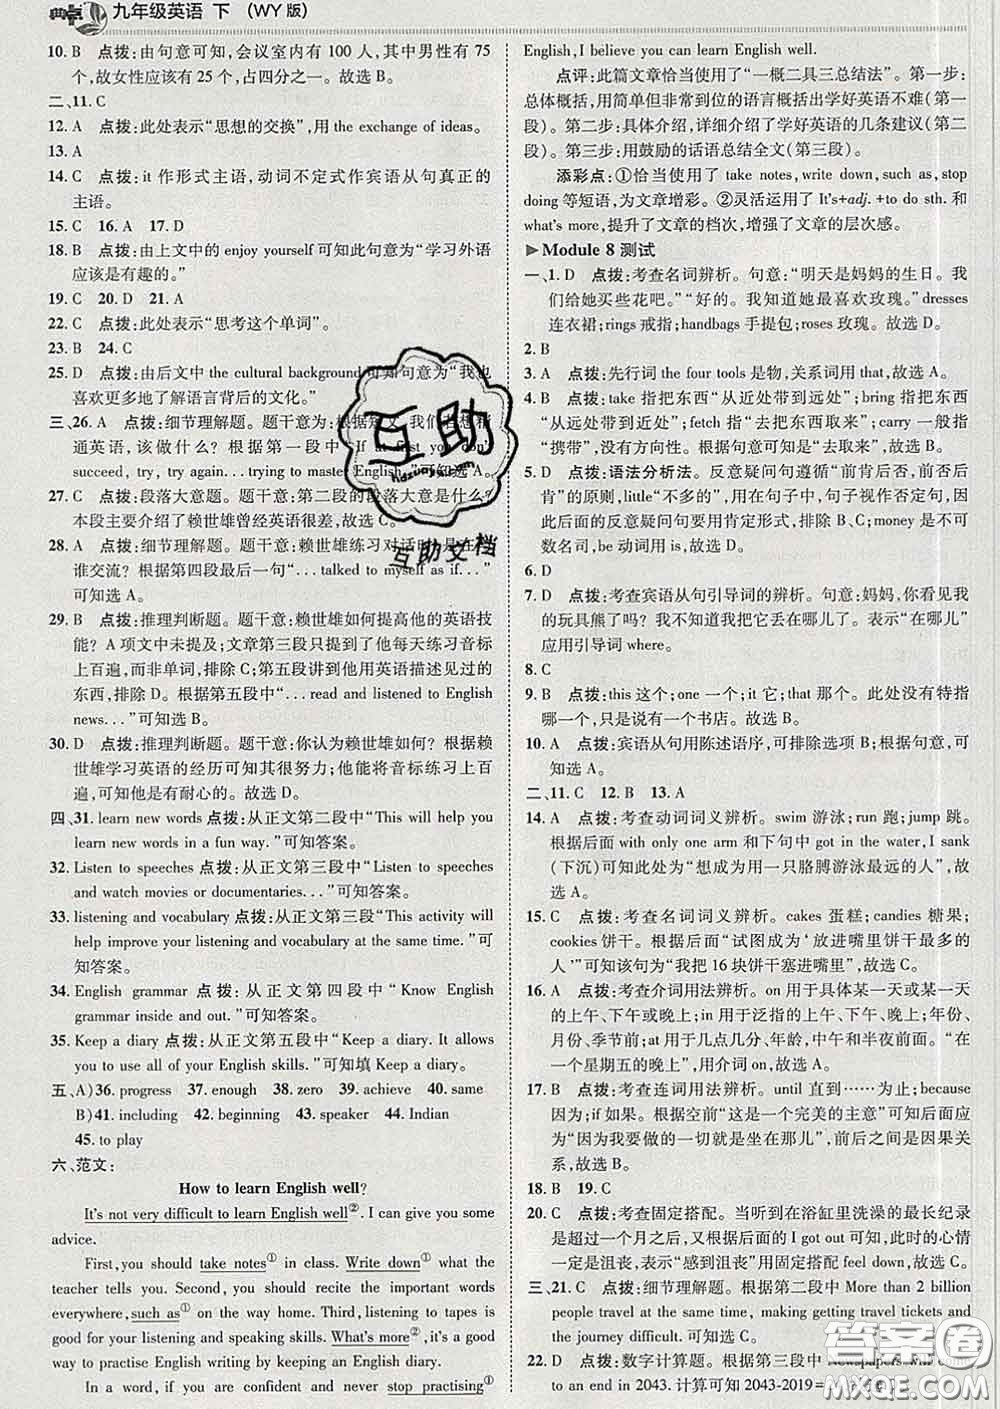 典中 九年级英语 下 (WY版)
10. B 点拨:由句意可知,会议室内有 100 人,其中男性有 75
个,故女性应该有 25 个,占四分之一。故选 B。
二、11. C
12. A 点拨:此处表示“思想的交换”,用 the exchange of ideas。
13. A
14. C 点拨:it 作形式主语,动词不定式作宾语从句真正的
主语。
15. C 16. A 17. D
18. B 点拨:由上文中的 enjoy yourself 可知此句意为“学习外语
应该是有趣的。”
19. C 20. D 21. A
22. C 点拨:此处表示“思考这个单词”。
23. B 24. C
25. D 点拨:由后文中 the cultural background 可知句意为“我也
喜欢更多地了解语言背后的文化。”
三、26. A 点拨:细节理解题。题干意为:根据短文,我们若想精
通英语,该做什么? 根据第一段中“If at first you don't
succeed, try, try again. . . trying to master English.”可知选 A。
27. C 点拨:段落大意题。题干意:第二段的段落大意是什么?
本段主要介绍了赖世雄曾经英语很差,故选 C。
28. A 点拨:细节理解题。题干意:赖世雄练习对话时是在
谁交流? 根据第四段最后一句“. . . talked to myself as if. . .”
可知选 A。
29. B 点拨:推理判断题。题干意:赖世雄如何提高他的英语技
能? A 项文中未提及;文章第三段只提到了他每天练习音标
上百遍,而非单词,排除 C;第五段讲到他用英语描述见过的
东西,排除 D。根据第五段中“. . . read and listened to English
news. . .”可知选 B。
30. D 点拨:推理判断题。题干意:你认为赖世雄如何? 根据赖
世雄学习英语的经历可知其他品质;他能将音标练习上百
遍,可知他是有耐心的。故选 D。
四、31. learn new words 点拨:从正文第二段中“This will help you
learn new words in a fun way.”可知答案。
32. Listen to speeches 点拨:从正文第三段中“Listen to speeches
and watch movies or documentaries. . .”可知答案。
33. listening and vocabulary 点拨:从正文第三段“This activity will
help improve your listening and vocabulary at the same time.”可
知答案。
34. English grammar 点拨:从正文第四段中“Know English
grammar inside and out.”可知答案。
35. Keep a diary 点拨:从正文第五段中“Keep a diary. It allows
you to use all of your English skills.”可知填 Keep a diary。
五、A)36. progress 37. enough 38. zero 39. achieve 40. same
B)41. including 42. beginning 43. speaker 44. Indian
45. to play
六、范文:
How to learn English well?
It's not very difficult to learn English well②. I can give you some
advice.
First, you should take notes① in class. Write down① what the
teacher tells you. Second, you should recite the important words
everywhere, such as① on the way home. Third, listening to tapes is
good for your listening and speaking skills. What's more②, it's a good
way to practise English writing by keeping an English diary.
In a word, if you are confident and never stop practising①
English, I believe you can learn English well.
点评:此篇文章恰当使用了“一概二具三总结法”。第一步:
总体概括,用简单但非常到位的语言概括出学好英语不难(第一
段)。第二步:具体介绍,详细介绍了学好英语的几条建议(第二
段)。第三步:用鼓励的话语总结全文(第三段)。
添彩点:①恰当使用了 take notes, write down, such as, stop
doing 等短语,为文章增彩。②灵活运用了 It's+adj. +to do sth. 和
what's more,提升了文章的档次,增强了文章的层次感。
▶Module 8 测试
一、1. D 点拨:考查名词辨析。句意:“明天是妈妈的生日。我
们给她买些花吧。”“好的。我知道她最喜欢玫瑰。”dresses
连衣裙;rings 戒指;handbags 手提包;roses 玫瑰。故选 D。
2. B
3. A 点拨:先行词 the four tools 是物,关系词用 that,故选 A。
4. B 点拨:take 指把东西“从近处带到远处”;bring 指把东西
“从远处带到近处”;fetch 指“去把东西取来”;carry 一般指
“携带”,没有方向性。根据句意可知是“去取来”,故选 B。
5. D 点拨:语法分析法。反意疑问句遵循“前肯后否,前否后
肯”的原则,little“不多的”,用在句子中,句子视作否定形式,
因此后面的反意疑问句要用肯定形式,排除 B、C;money 是不可
数名词,be 动词用 is。故选 D。
6. D
7. D 点拨:考查宾语从句引导词的辨析。句意:妈妈,你看见我
的玩具熊了吗? 我不知道我把它丢在哪儿了。表示“在哪儿”
应用引导词 where。
8. C
9. B 点拨:this 这个;one 一个;it 它;that 那个。此处没有特指
哪一个,只是说有一个书店。故选 B。
10. A 点拨:宾语从句用陈述语序,可排除选项 B;根据句意,可
知选 A。
二、11. C 12. B 13. A
14. A 点拨:考查动词词义辨析。swim 游泳;run 跑;jump 跳。
根据后面 with only one arm 和下句中 got in the water, I sank
(下沉)可知此处为“想成为一只胳膊游泳最远的人”,故
选 A。
15. C 点拨:考查名词词义辨析。cakes 蛋糕;candies 糖果;
cookies 饼干。根据后面“试图成为‘放进嘴里饼干最多的
人’”可知该句为“我把 16 块饼干塞进嘴里”,故选 C。
16. A 点拨:考查介词用法辨析。on 用于具体某一天或某一天
的上午、下午或晚上等;in 用于泛指的上午、下午、晚上;年份、
月份、季节前;at 用于几点几分、年龄,中午和半夜前面。“在
一个星期五的晚上”,用介词 on,故选 A。
17. B 点拨:考查连词用法辨析。until 直到……为止;because
因为;if 如果。根据空前“这是一个完美的主意”可知后面应
为“因为我要做的一切就是坐在那儿”,表示前因后果关
系,故选 B。
18. B 19. C
20. C 点拨:考查固定搭配。当听到在浴缸里洗澡的最长纪录
是超过一个月之后,又根据后面的 I got out 可知,此时的心情
一定是沮丧,表示“感到沮丧”应用固定搭配 feel down,故选 C。
三、21. C 点拨:细节理解题。根据第二段中 More than 2 billion
people travel at the same time, making getting travel tickets and
the journey difficult. 可知选 C。
22. D 点拨:数字计算题。根据第三段中 Newspapers will come
to an end in 2043. 计算可知 2043-2019=
互助
hdzuoye.com
互助文档
答案圈